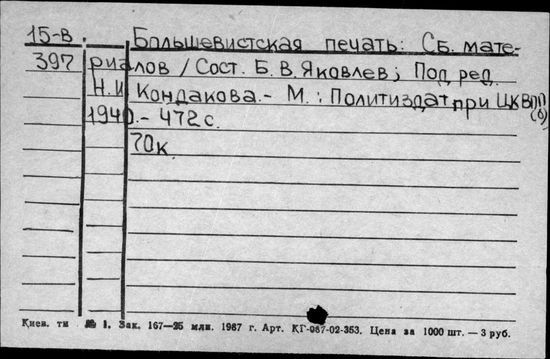 15-В. Большевистская печать: Сб. мате-
397 риалов / Сост. Б. В. Яковлев; Под ред.
Н. И. Кондакова. - М.: Политиздат при ЦКВКП
(б)
1940. - 472 с.
70к.
Киев. ти № 1. Зак. 167—25 млн. 1987 г. Арт. КГ-087-02-353. Цена за 1000 шт. — 3 руб.